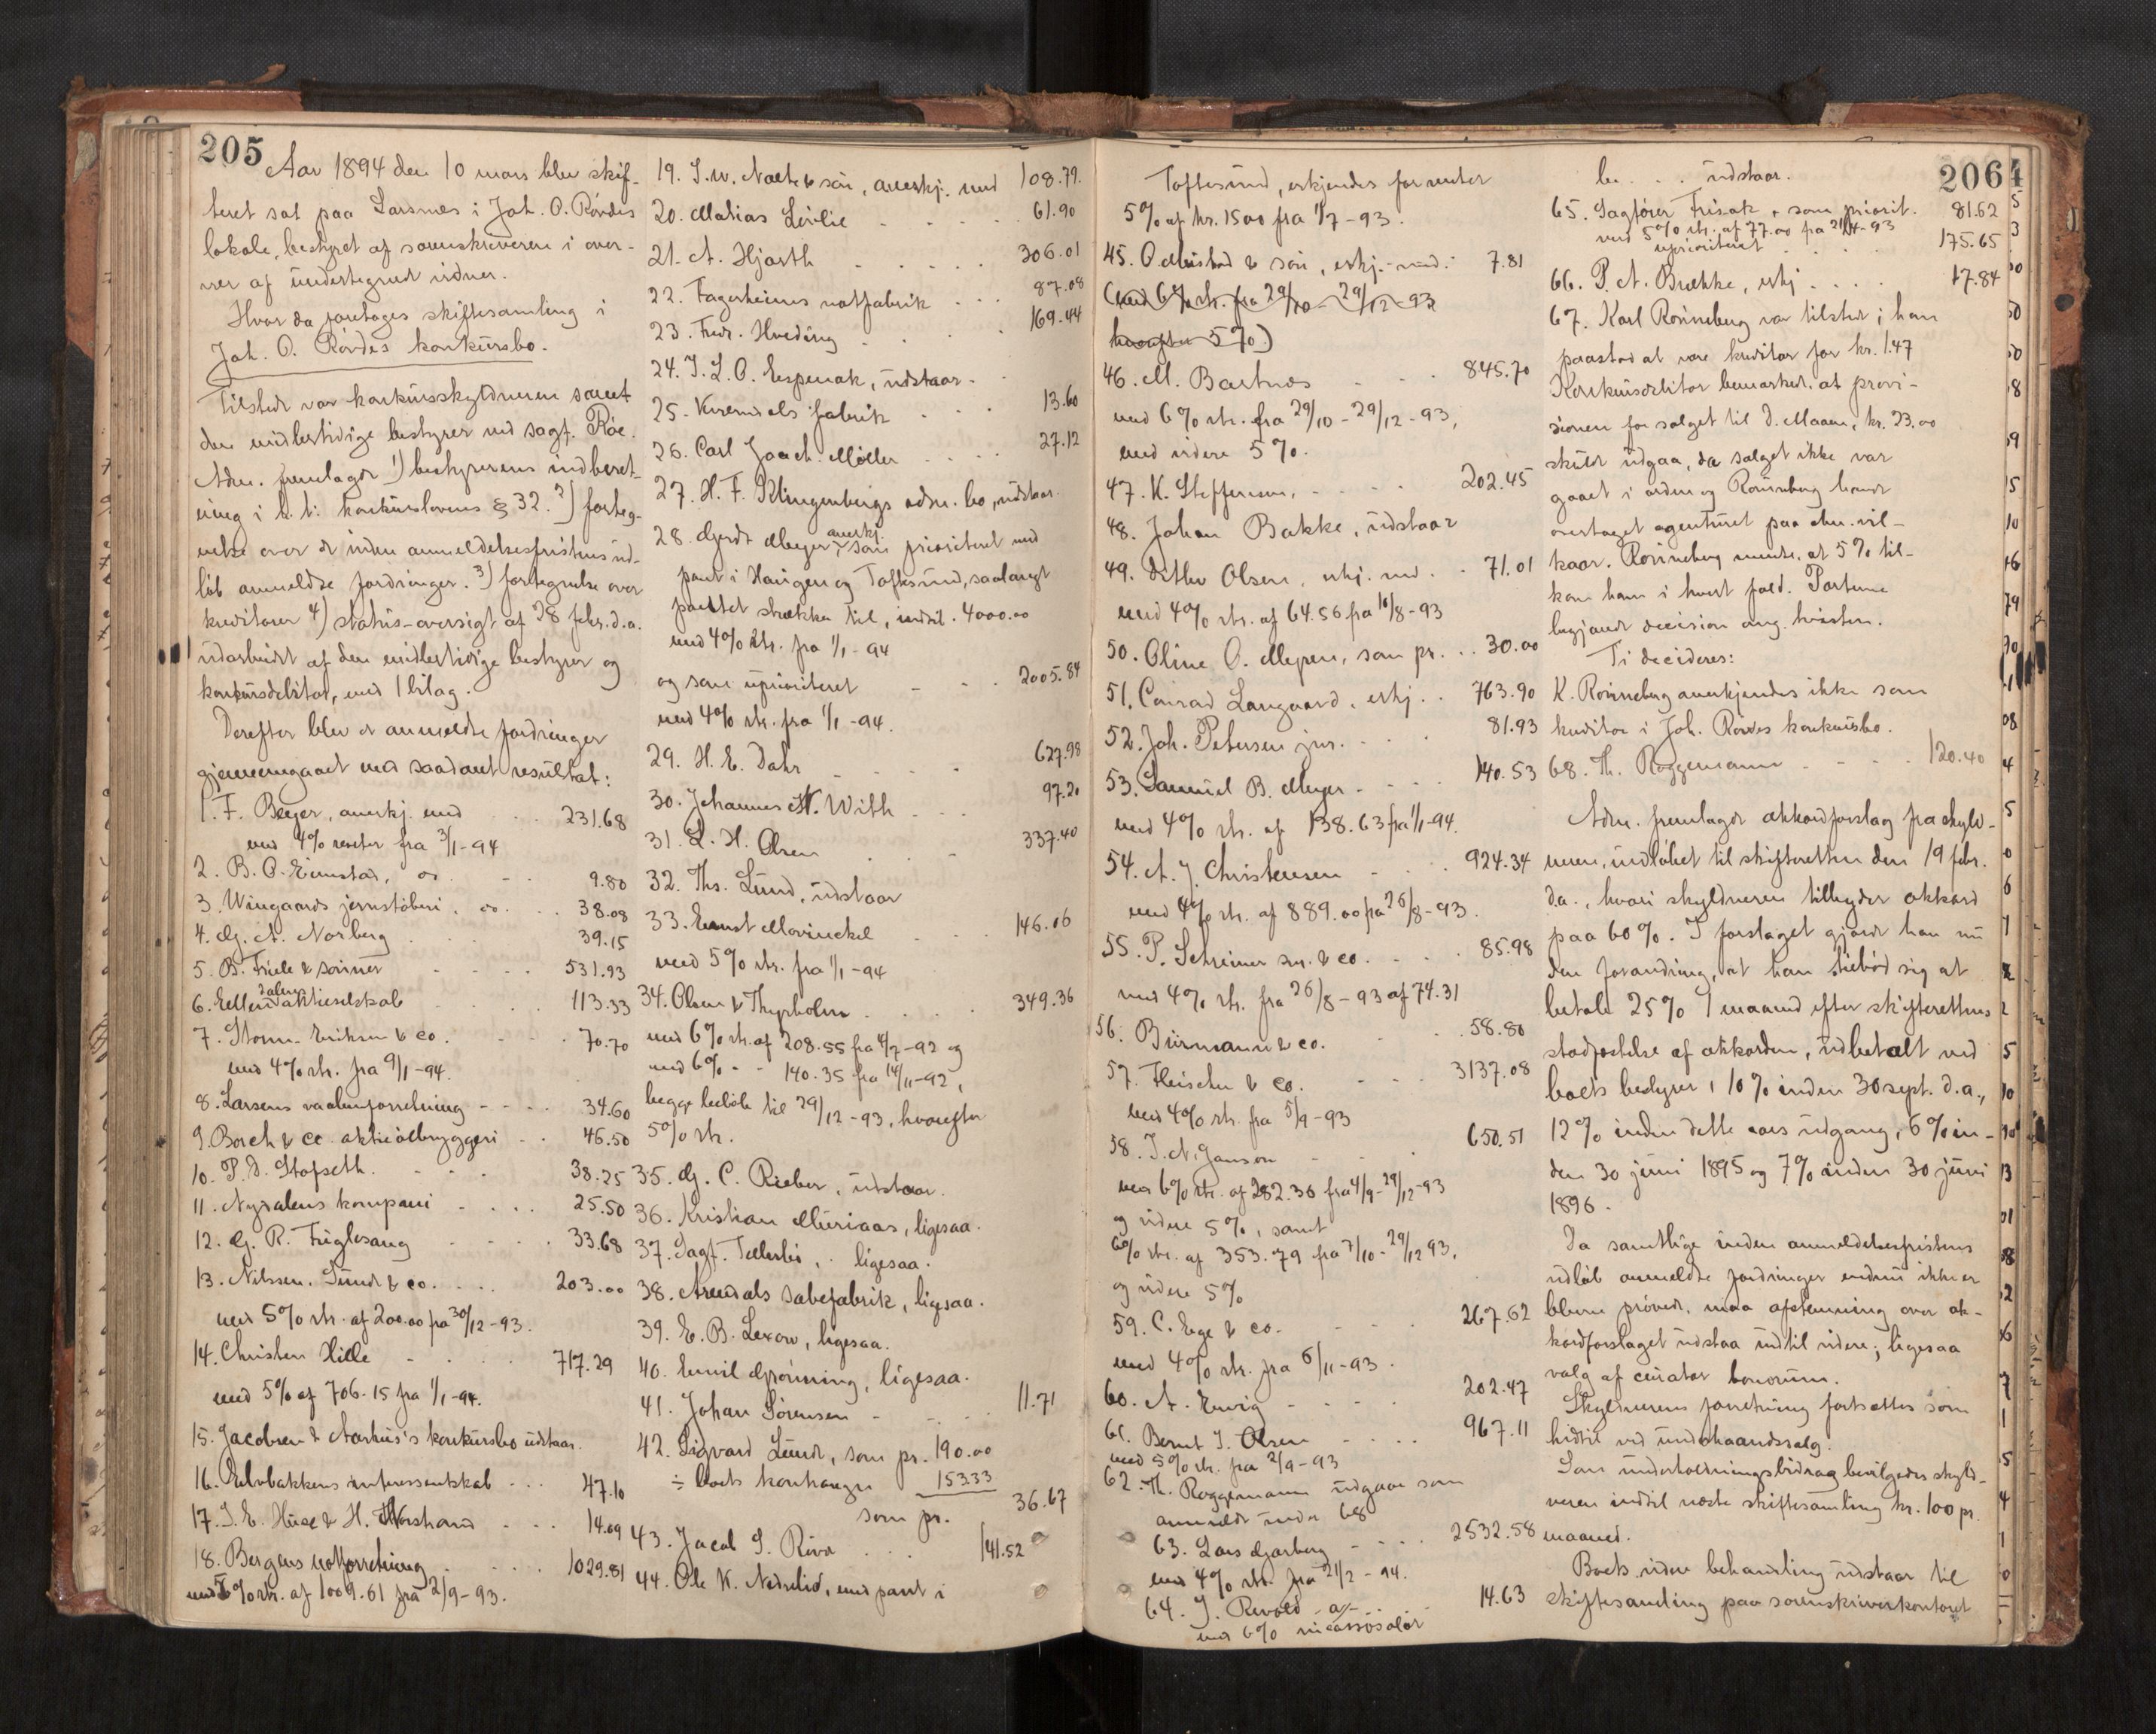 205
Aar 1894 den 10 mars blev skif-
teret sat paa Larsnes i Joh. O. Rövdes
lokale, bestyret af sorenskriveren i over-
vær af undertegnede vidner.
Hvor da foretoges skiftesamling i
Joh. O. Rövdes konkursbo.
Tilstede var konkursskyldneren samt
den midlertidige bestyrer ved sagf. Röe.
Adm. fremlagde 1) bestyrerens indberet-
ning i h. t. konkurslovens § 32. 2) forteg-
nelse over de inden anmeldelsesfristens ud-
löb anmeldte fordringer. 3) fortegnelse over
kreditorer 4) status-oversigt af 28 febr. d.a.
udarbeidet af den midlertidige bestyrer og
konkursdebitor, med 1 bilag.
Derefter blev de anmeldte fordringer
gjennemgaaet med saadant resultat:
1. F. Beyer, anerkj. med . . 231.68
med 4% renter fra 3/1-94
2. B. A. Eimstad, do. - - 9.80
3. Wingaards jernstöberi, do. . . 38.08
4. G. A. Norberg . . . 39.15
5. B. Friele & sönner - - - 531.93
6. Eellendalens aktieselskab . . 113.33
7. Storm-Eriksen & co. - - 70.70
med 4% rtr. fra 9/1-94.
8. Larsens vaabenforretning - - - 34.60
9. Borch & co. aktieölbryggeri . . 46.50
10. P. D. Stafseth. - - - 38.25
11. Nydalens kompani - . . . 25.50
12. G. R. Fuglesang - - - - 33.68
13. Nilssen, Sund & co. . . . 203.00
med 5% rtr. af 200.00 fra 30/12-93.
14. Christen Hille - . . . 717.29
med 5% af 706.15 fra 1/1-94.
15. Jacobsen & Aarhus's konkursbo udstaar.
16. Elvebakkens interessentskab . . . 47.10
17. I. E. Huse & H. Horshavn . . . 14.09
18. Bergens notforretning . . . . 1029.81
med 5% rtr. af 1009.61 fra 2/9-93.
19. I. W. Nolte & sön, anerkj. med 108.79.
20. Matias Lövlie - - - - 61.90
21. A. Hjorth - - - - - 306.01
22. Fagerheims notfabrik - - - 87.08
23. Fredr. Hveding . . . . 169.44
24. I. L. O. Eespenak, udstaar. -
25. Kværndals fabrik - - - 13.60
26. Carl Joach. Möller . . . . 27.12
27. H. F. Klingenbergs adm. bo, udstaar.
28. Gerdt Meyer, anerkj. som prioriteret med
pant i Haugen og Toftesund, saalangt
pantet strækker til, indtil . 4000.00
med 4% rtr. fra 1/1-94
og som uprioriteret - - - 2005.84
med 4% rtr. fra 1/1-94.
29. H. E. Dahr - - - - 627.98
30. Johannes H. With - - - 97.20
31. L. H. Olsen . . - 337.40
32. Ths. Lund, udstaar
33. Ernst Mowinckel - - - 146.06
med 5% rtr. fra 1/1-94
34. Olsen & Thypholm - . . . 349.36
med 6% rtr. af 208.55 fra 4/7-92 og
med 6% - - 140.35 fra 14/11-92,
begge belöb til 29/12-93, hvorefter
5% rtr.
35. G. C. Rieber, udstaar.
36. Kristian Muriaas, ligesaa.
37. Sagf. Tellesbö, . ligesaa.
38. Arendals sæbefabrik, ligesaa.
39. E. B. Lexow, ligesaa.
40. Emil Grönning, ligesaa.
41. Johan Sörensen - - - - 11.71
42. Sigvard Lund, som pr. 190.00
÷ boets kontrakrav 153.33
som pr. 36.67
43. Jacob S. Rivdr . . . 141.52
44. Ole K. Nedrelid, med pant i
Toftesund, erkjendes for renter
5% af kr. 1500 fra 1/7-93.
45. O. Mustad & sön, erkj. med. 7.81
(med 6% rtr. fra 29/10 - 29/12-93
hvorefter 5%.)
46. M. Bartnes - - - 845.70
med 6% rtr. fra 29/10 - 29/12-93,
med videre 5%.
47. K. Steffensen, - - - - 202.45
48. Johan Bakke, udstaar
49. Ditlev Olsen, erkj. med. . 71.01
med 4% rtr. af 64.56 fra 16/8-93
50. Oline O. Myren, som pr. . . 30.00
51. Conrad Langaard, erkj. . 763.90
52. Joh. Petersen jnr. - - - 81.93
53. Samuel B. Meyer - - - - 140.53
med 4% rtr. af 138.63 fra 1/1-94.
54. A. J. Christensen - - - 924.34
med 4% rtr. af 889.00 fra 26/8-93.
55. P. Schreiner snr. & co. - - . 85.98
med 4% rtr. fra 26/8-93 af 74.31
56. Burmann & co. . . 58.80
57. Fleischer & co. - - - 3137.08
med 4% rtr. fra 5/9-93
58. I. N. Janson - - - 650.51
med 6% rtr. af 282.36 fra 4/9-29/12-93
og videre 5%, samt
6% rtr. af 353.79 fra 7/10-29/12 93,
og videre 5%
59. C. Ege & co. - - - 267.62
med 4% rtr. fra 6/11-93.
60. A. Enwig - - - - 202.47
61. Bernt I. Olsen - - - - 967.11
med 5% rtr. fra 2/9-93
62. Th. Roggemann udgaar som
anmeldt under 68
63. Lars Garberg - - - - 2532.58
med 4% rtr. fra 21/2-94.
64. J. Revold a/- - . . 14.63
med 6% incassosalær
2064
be . . . udstaar.
65. Sagförer Frisak, som priorit. 81.62
med 5% rtr. af 77.00 fra 21/4-93
uprioriteret . . . 175.65
66. P. A. Brække, erkj. . . . 17.84
67. Karl Rönneberg var tilstede; han
paastod at være kreditor for kr. 1.47
Konkursdebitor bemærket, at provi-
sionen for salget til D. Maaen, kr. 23.00
skulde udgaa, da salget ikke var
gaaet i orden og Rönneberg havde
overtaget agenturet paa alm. vil-
kaar. Rönneberg mente, at 5% til-
kom ham i hvert fald. Parterne
begjærede decision ang. tvisten.
Ti decideres:
K. Rönneberg anerkjendes ikke som
kreditor i Joh. Rövdes konkursbo.
68. Th. Roggemann - - - - 120.40
Adm. fremlagde akkordforslag fra skyld-
neren, indlöbet til skifteretten den 19 febr.
d.a., hvori skyldneren tilbyder akkord
paa 60%. I forslaget gjorde han nu
den forandring, at han tilböd sig at
betale 25% 1 maaned efter skifterettens
stadfæstelse af akkorden, udbetalt ved
boets bestyrer, 10% inden 30 sept. d.a.,
12% inden dette aars udgang, 6% in-
den 30 juni 1895 og 7% inden 30 juni
1896.
Da samtlige inden anmeldelsesfristens
udlöb anmeldte fordringer endnu ikke er
blevne prövede, maa afstemning over ak-
kordforslaget udstaa indtil videre; ligesaa
valg af curator bonorum.
Skyldnerens forretning fortsættes som
hidtil ved underhaandssalg.
Som underholdningsbidrag bevilgedes skyld-
neren indtil næste skiftesamling kr. 100 pr.
maaned.
Boets videre behandling udstaar til
skiftesamling paa sorenskriverkontoret